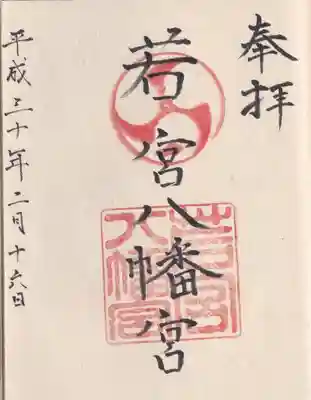 奉拝
若宮八幡宮
若宮八幡宮
平成三十年二月十六日